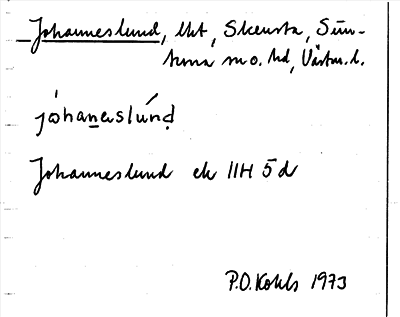 Johanneslund, lht, Skensta, Sim-
tuna sn o. hd, Västm. l.
jòhaneslúnd
Johanneslund ek 11H 5d
P.O. Kohls 1973